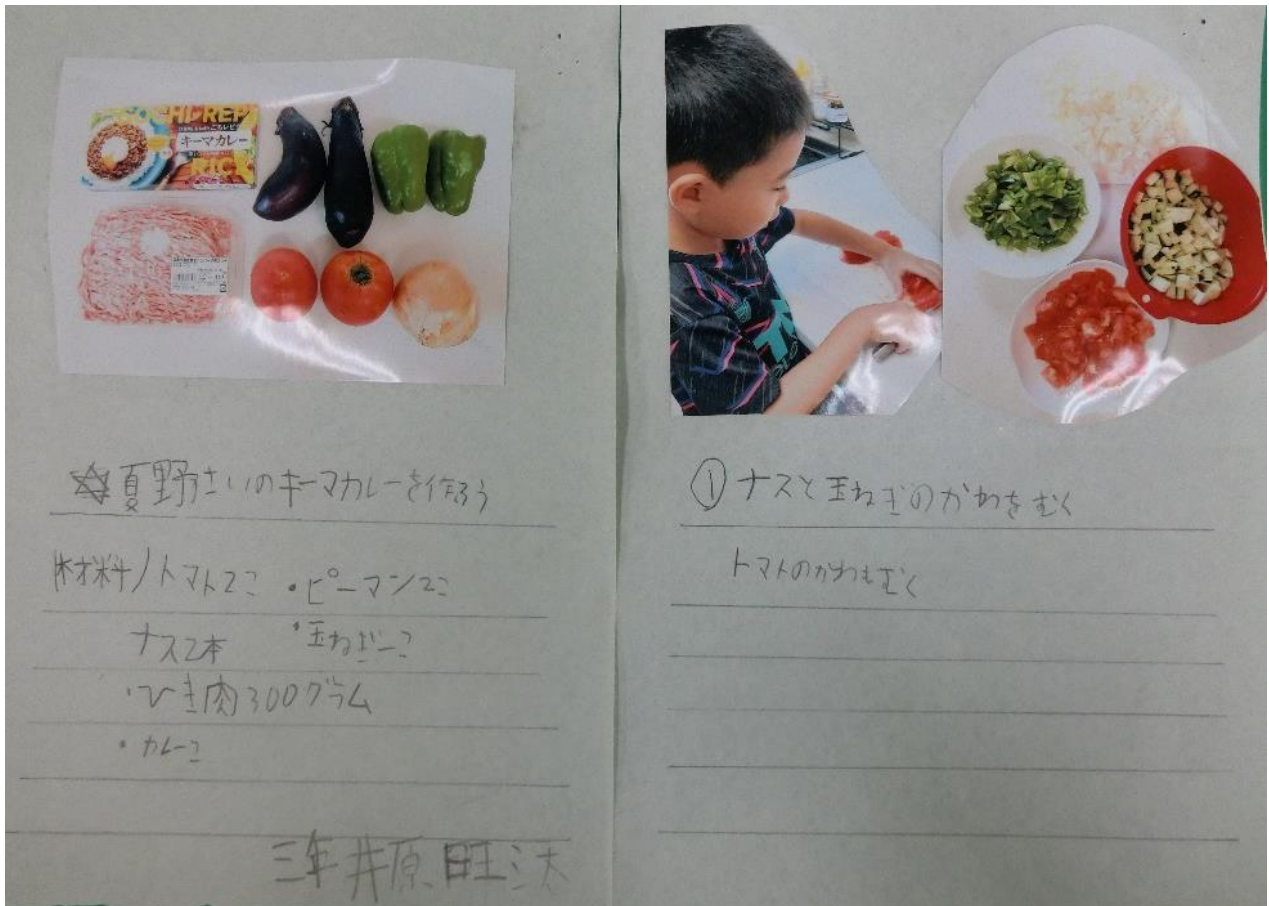 CHI-REP
キーマカレー
RIC
☆夏野さいのキーマカレーを作ろう
材料/トマト2こ ・ピーマン2こ
ナス2本 ・玉ねぎ一こ
・ひき肉300グラム
・カレーこ
三年 井原 旺汰
① ナスと玉ねぎのかわをむく
トマトのかわもむく